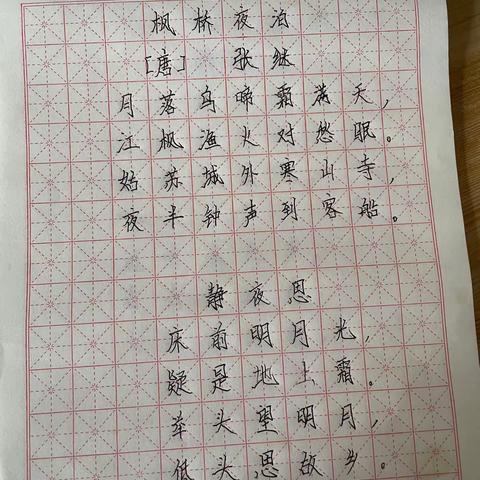 枫桥夜泊
[唐] 张继
月落乌啼霜满天，
江枫渔火对愁眠。
姑苏城外寒山寺，
夜半钟声到客船。
静夜思
床前明月光，
疑是地上霜。
举头望明月，
低头思故乡。